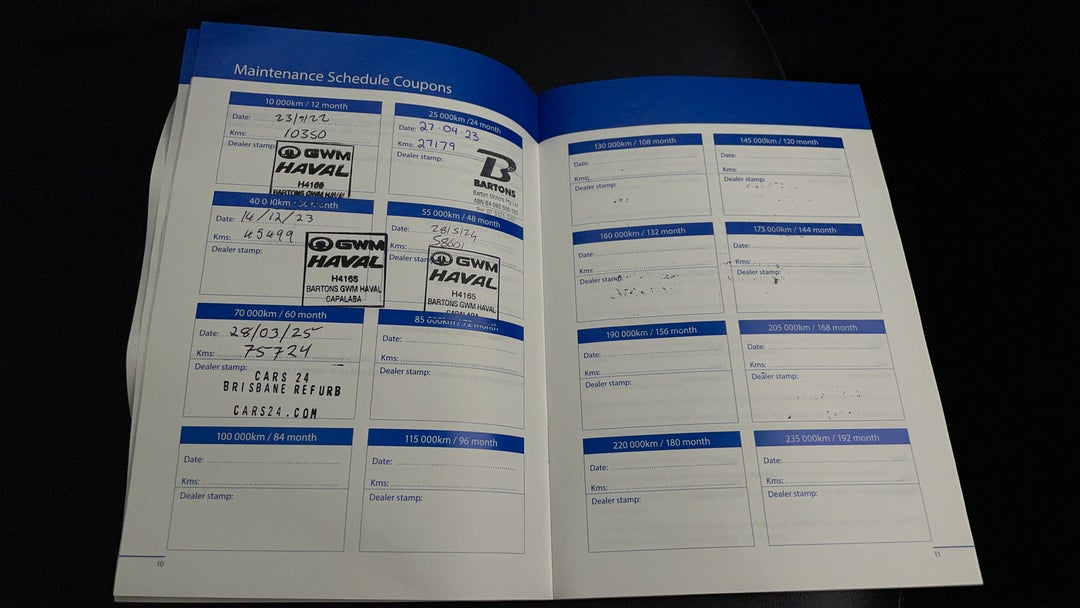 Maintenance Schedule Coupons
10 000km / 12 month
Date: 23/7/22
Kms: 10350
Dealer stamp:
GWM
HAVAL
H4165
BARTONS GWM HAVAL
25 000km /24 month
Date: 27.04 23
Kms: 27179
Dealer stamp:
B
BARTONS
Barton Motors Pty Ltd
40 000km
Date: 14/12/23
Kms: 45499
Dealer stamp:
GWM
HAVAL
H4165
BARTONS GWM HAVAL
CAPALABA
55 000km / 48 month
Date: 28/5/24
Kms: 58601
Dealer stamp
GWM
HAVAL
H4165
BARTONS GWM HAVAL
CAPALABA
70 000km / 60 month
Date: 28/03/25
Kms: 75724
Dealer stamp:
CARS 24
BRISBANE REFURB
CARS24.COM
85 000km / 72 month
Date:
Kms:
Dealer stamp:
100 000km / 84 month
Date:
Kms:
Dealer stamp:
115 000km / 96 month
Date:
Kms:
Dealer stamp:
10
130 000km / 108 month
Date:
Kms:
Dealer stamp:
145 000km / 120 month
Date:
Kms:
Dealer stamp:
160 000km / 132 month
Date:
Kms:
Dealer stamp:
175 000km / 144 month
Date:
Kms:
Dealer stamp:
190 000km / 156 month
Date:
Kms:
Dealer stamp:
205 000km / 168 month
Date:
Kms:
Dealer stamp:
220 000km / 180 month
Date:
Kms:
Dealer stamp:
235 000km / 192 month
Date:
Kms:
Dealer stamp:
11